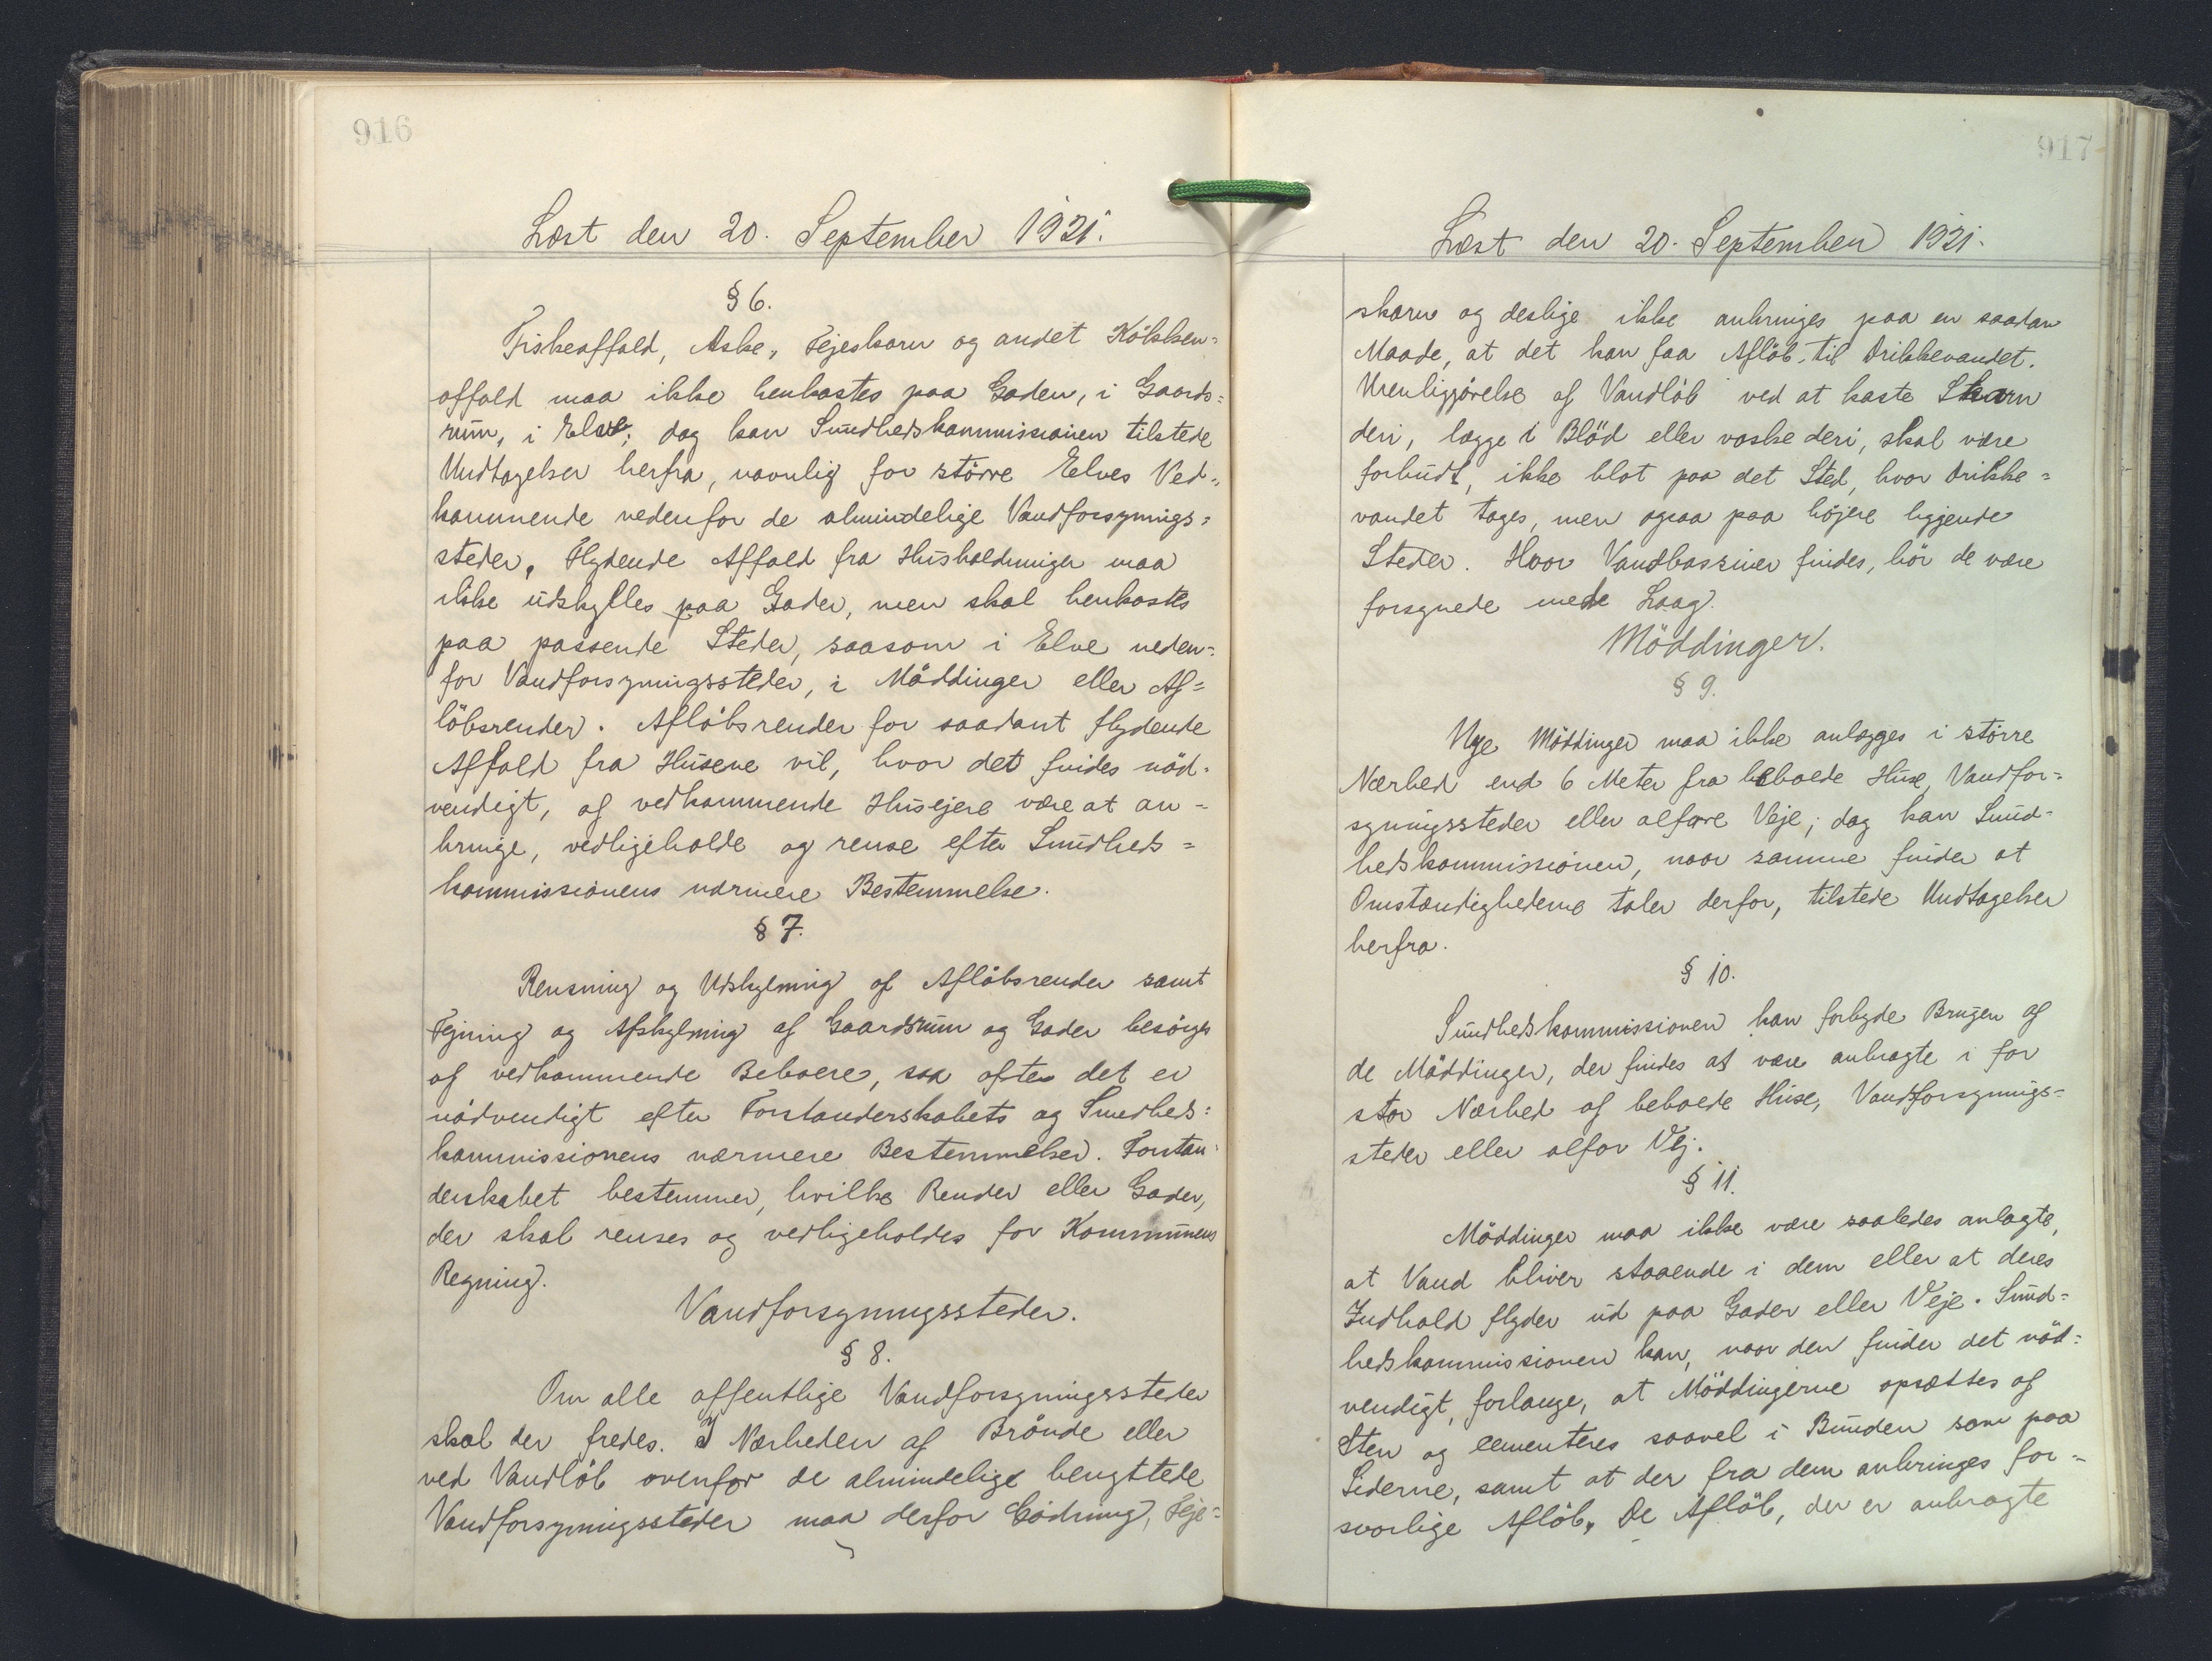 916
Læst den 20. September 1921.
§ 6.
Fiskeaffald, Aske, Fejeskarn og andet Kökken=
affald maa ikke henkastes paa Gaden, i Gaards=
rum, i Elve; dog kan Sundhedskommissionen tilstede
Undtagelser herfra, navnlig for större Elves Ved-
kommende nedenfor de almindelige Vandforsynings=
steder. Flydende Affald fra Husholdninger maa
ikke udskylles paa Gader, men skal henkastes
paa passende Steder, saasom i Elve neden=
for Vandforsyningssteder, i Möddinger eller Af=
löbsrender. Aflöbsrender for saadant flydende
Affald fra Husene vil, hvor det findes nöd-
vendigt, af vedkommende Husejere være at an-
bringe, vedligeholde og rense efter Sundheds=
kommissionens nærmere Bestemmelse.
§ 7.
Rensning og Udskylning af Aflöbsrender samt
Fejning og Afskylning af Gaardsrum og Gader besörges
af vedkommende Beboere, saa ofte det er
nödvendigt efter Forstanderskabets og Sundheds=
kommissionens nærmere Bestemmelser. Forstan-
derskabet bestemmer, hvilke Render eller Gader,
der skal renses og vedligeholdes for Kommunens
Regning.
Vandforsyningssteder.
§ 8.
Om alle offentlige Vandforsyningssteder
skal der fredes. I Nærheden af Brönde eller
ved Vandlöb ovenfor de almindelige benyttede
Vandforsyningssteder maa derfor Gödning, Feje=
917
Læst den 20. September 1921.
skarn og deslige ikke anbringes paa en saadan
Maade, at det kan faa Aflöb til Drikkevandet.
Urenliggörelse af Vandlöb ved at kaste Skarn
deri, lægge i Blöd eller vaske deri, skal være
forbudt, ikke blot paa det Sted, hvor Drikke=
vandet tages, men ogsaa paa höjere liggende
Steder. Hvor Vandbassiner findes, bör de være
forsynede med Laag.
Möddinger.
§ 9.
Nye Möddinger maa ikke anlægges i större
Nærhed end 6 Meter fra beboede Huse, Vandfor=
syningssteder eller alfare Veje; dog kan Sund-
hedskommissionen, naar samme finder at
Omstændighederne taler derfor, tilstede Undtagelser
herfra.
§ 10.
Sundhedskommissionen kan forbyde Brugen af
de Möddinger, der findes at være anbragte i for
stor Nærhed af beboede Huse, Vandforsynings=
steder eller alfar Vej.
§ 11.
Möddinger maa ikke være saaledes anlagte,
at Vand bliver staaende i dem eller at deres
Indhold flyder ud paa Gader eller Veje. Sund=
hedskommissionen kan, naar den finder det nöd=
vendigt, forlange, at Möddingerne opsættes af
Sten og cementeres saavel i Bunden som paa
Siderne, samt at der fra dem anbringes for-
svarlige Aflöb. De Aflöb, der er anbragte